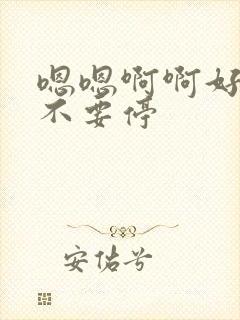 嗯嗯啊啊好
不要停
安佑兮